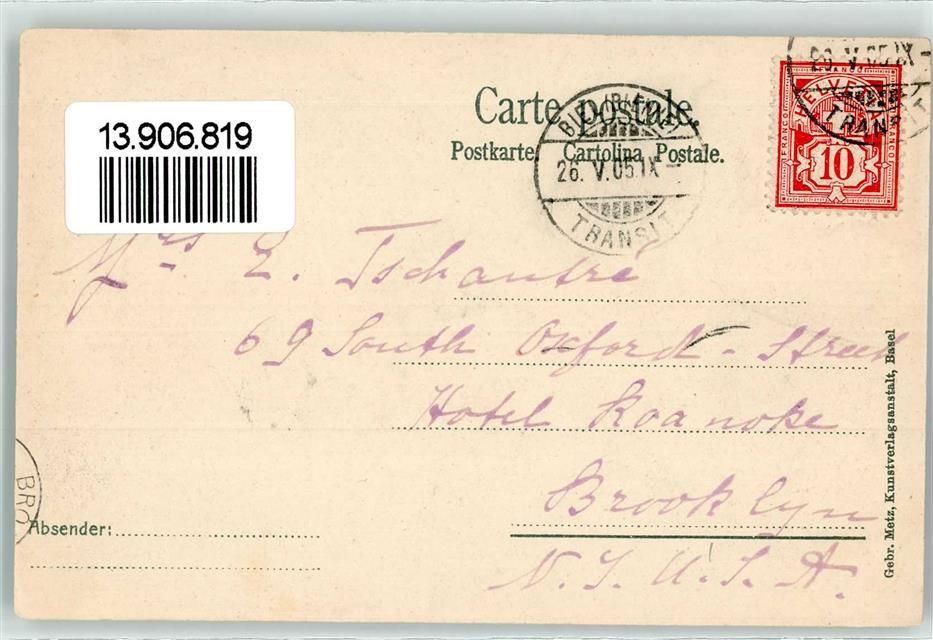 13.906.819
Carte postale.
Postkarte. Cartolina Postale.
BIEL (BIENNE)
26. V. 05. IX –
TRANSIT
26. V. 05. IX –
TRANSIT
HELVETIA
FRANCO
FRANCO
FRANCO
10
Mrs E. Tschantré
69 South Oxford - Street
Hotel Roanoke
Brooklyn
N. Y. U. S. A.
BRO
Absender:
Gebr. Metz, Kunstverlagsanstalt, Basel